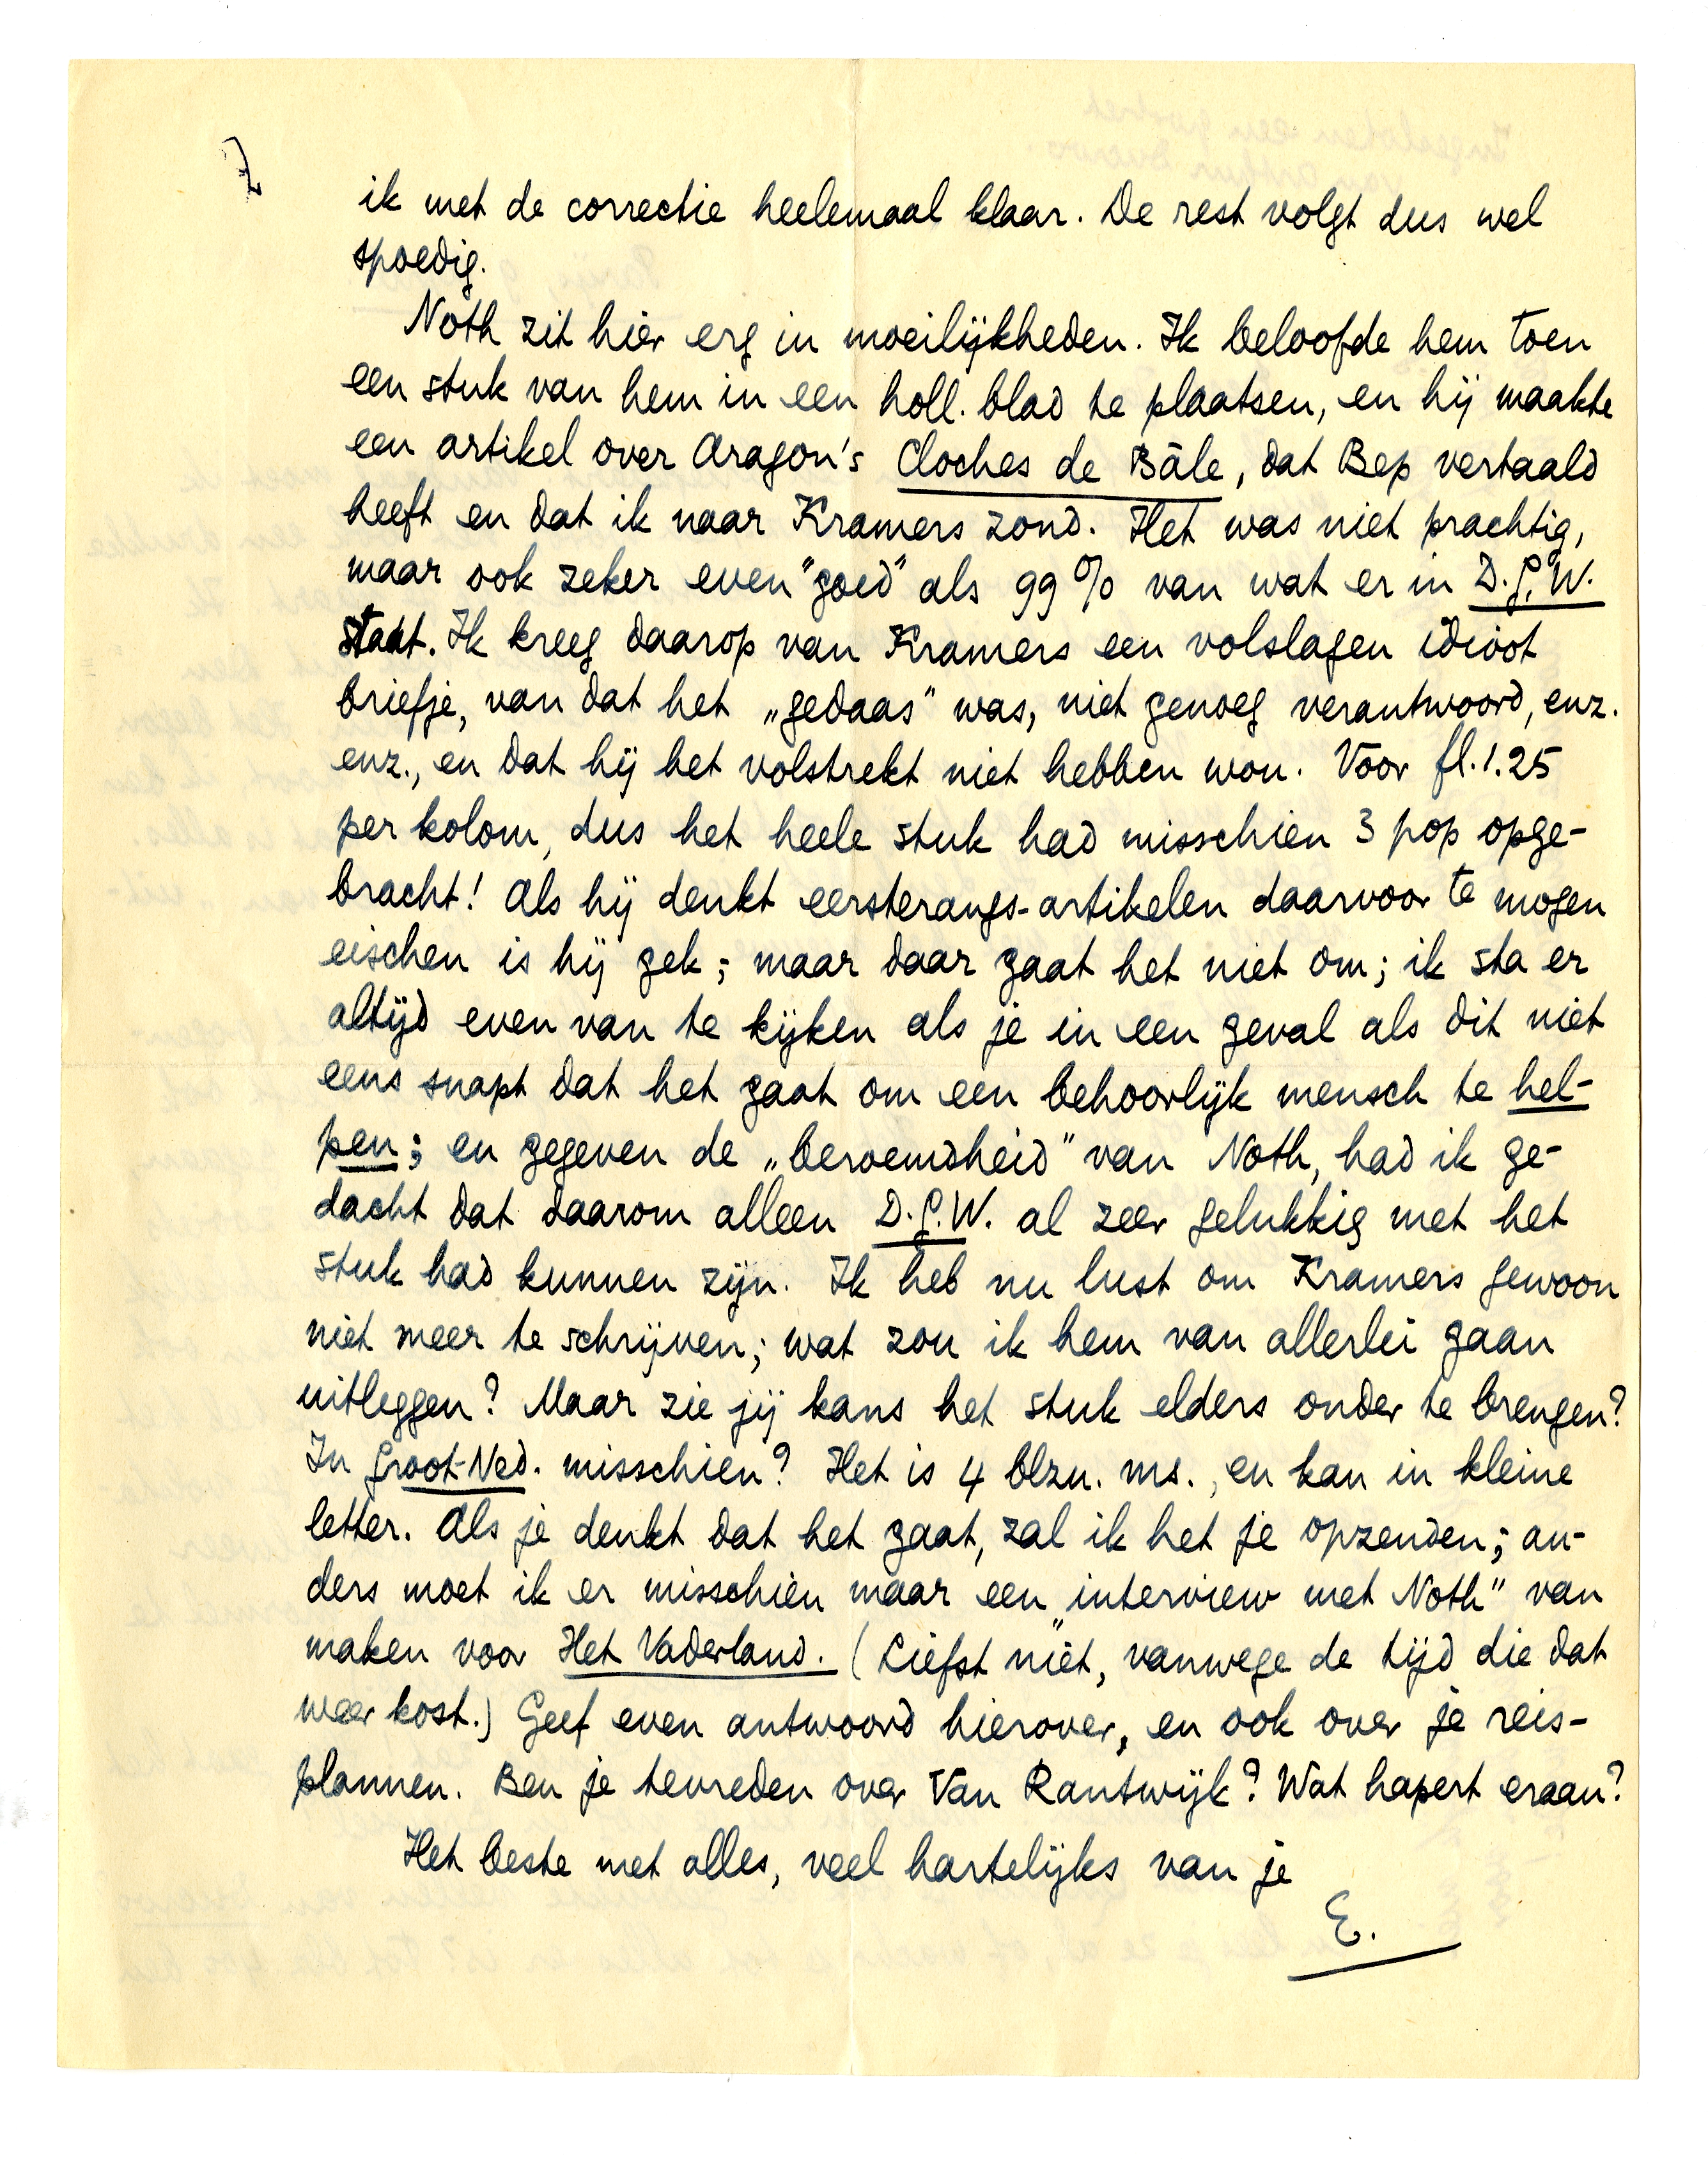 ik met de correctie heelemaal klaar. De rest volgt dus wel
spoedig.
Noth zit hier erg in moeilijkheden. Ik beloofde hem toen
een stuk van hem in een holl. blad te plaatsen, en hij maakte
een artikel over Aragon's Cloches de Bâle, dat Bep vertaald
heeft en dat ik naar Kramers zond. Het was niet prachtig,
maar ook zeker even "goed" als 99% van wat er in D.G.W.
staat. Ik kreeg daarop van Kramers een volslagen idioot
briefje, van dat het „gedaas" was, niet genoeg verantwoord, enz.
enz., en dat hij het volstrekt niet hebben wou. Voor fl.1.25
per kolom, dus het heele stuk had misschien 3 pop opge-
bracht! Als hij denkt eersterangs-artikelen daarvoor te mogen
eischen is hij gek; maar daar gaat het niet om; ik sta er
altijd even van te kijken als je in een geval als dit niet
eens snapt dat het gaat om een behoorlijk mensch te hel-
pen; en gegeven de „beroemdheid" van Noth, had ik ge-
dacht dat daarom alleen D.G.W. al zeer gelukkig met het
stuk had kunnen zijn. Ik heb nu lust om Kramers gewoon
niet meer te schrijven; wat zou ik hem van allerlei gaan
uitleggen? Maar zie jij kans het stuk elders onder te brengen?
In Groot-Ned. misschien? Het is 4 blzn. ms., en kan in kleine
letter. Als je denkt dat het gaat, zal ik het je opzenden; an-
ders moet ik er misschien maar een „interview met Noth" van
maken voor Het Vaderland. (Liefst niet, vanwege de tijd die dat
weer kost.) Geef even antwoord hierover, en ook over je reis-
plannen. Ben je tevreden over Van Rantwijk? Wat hapert eraan?
Het beste met alles, veel hartelijks van je
E.